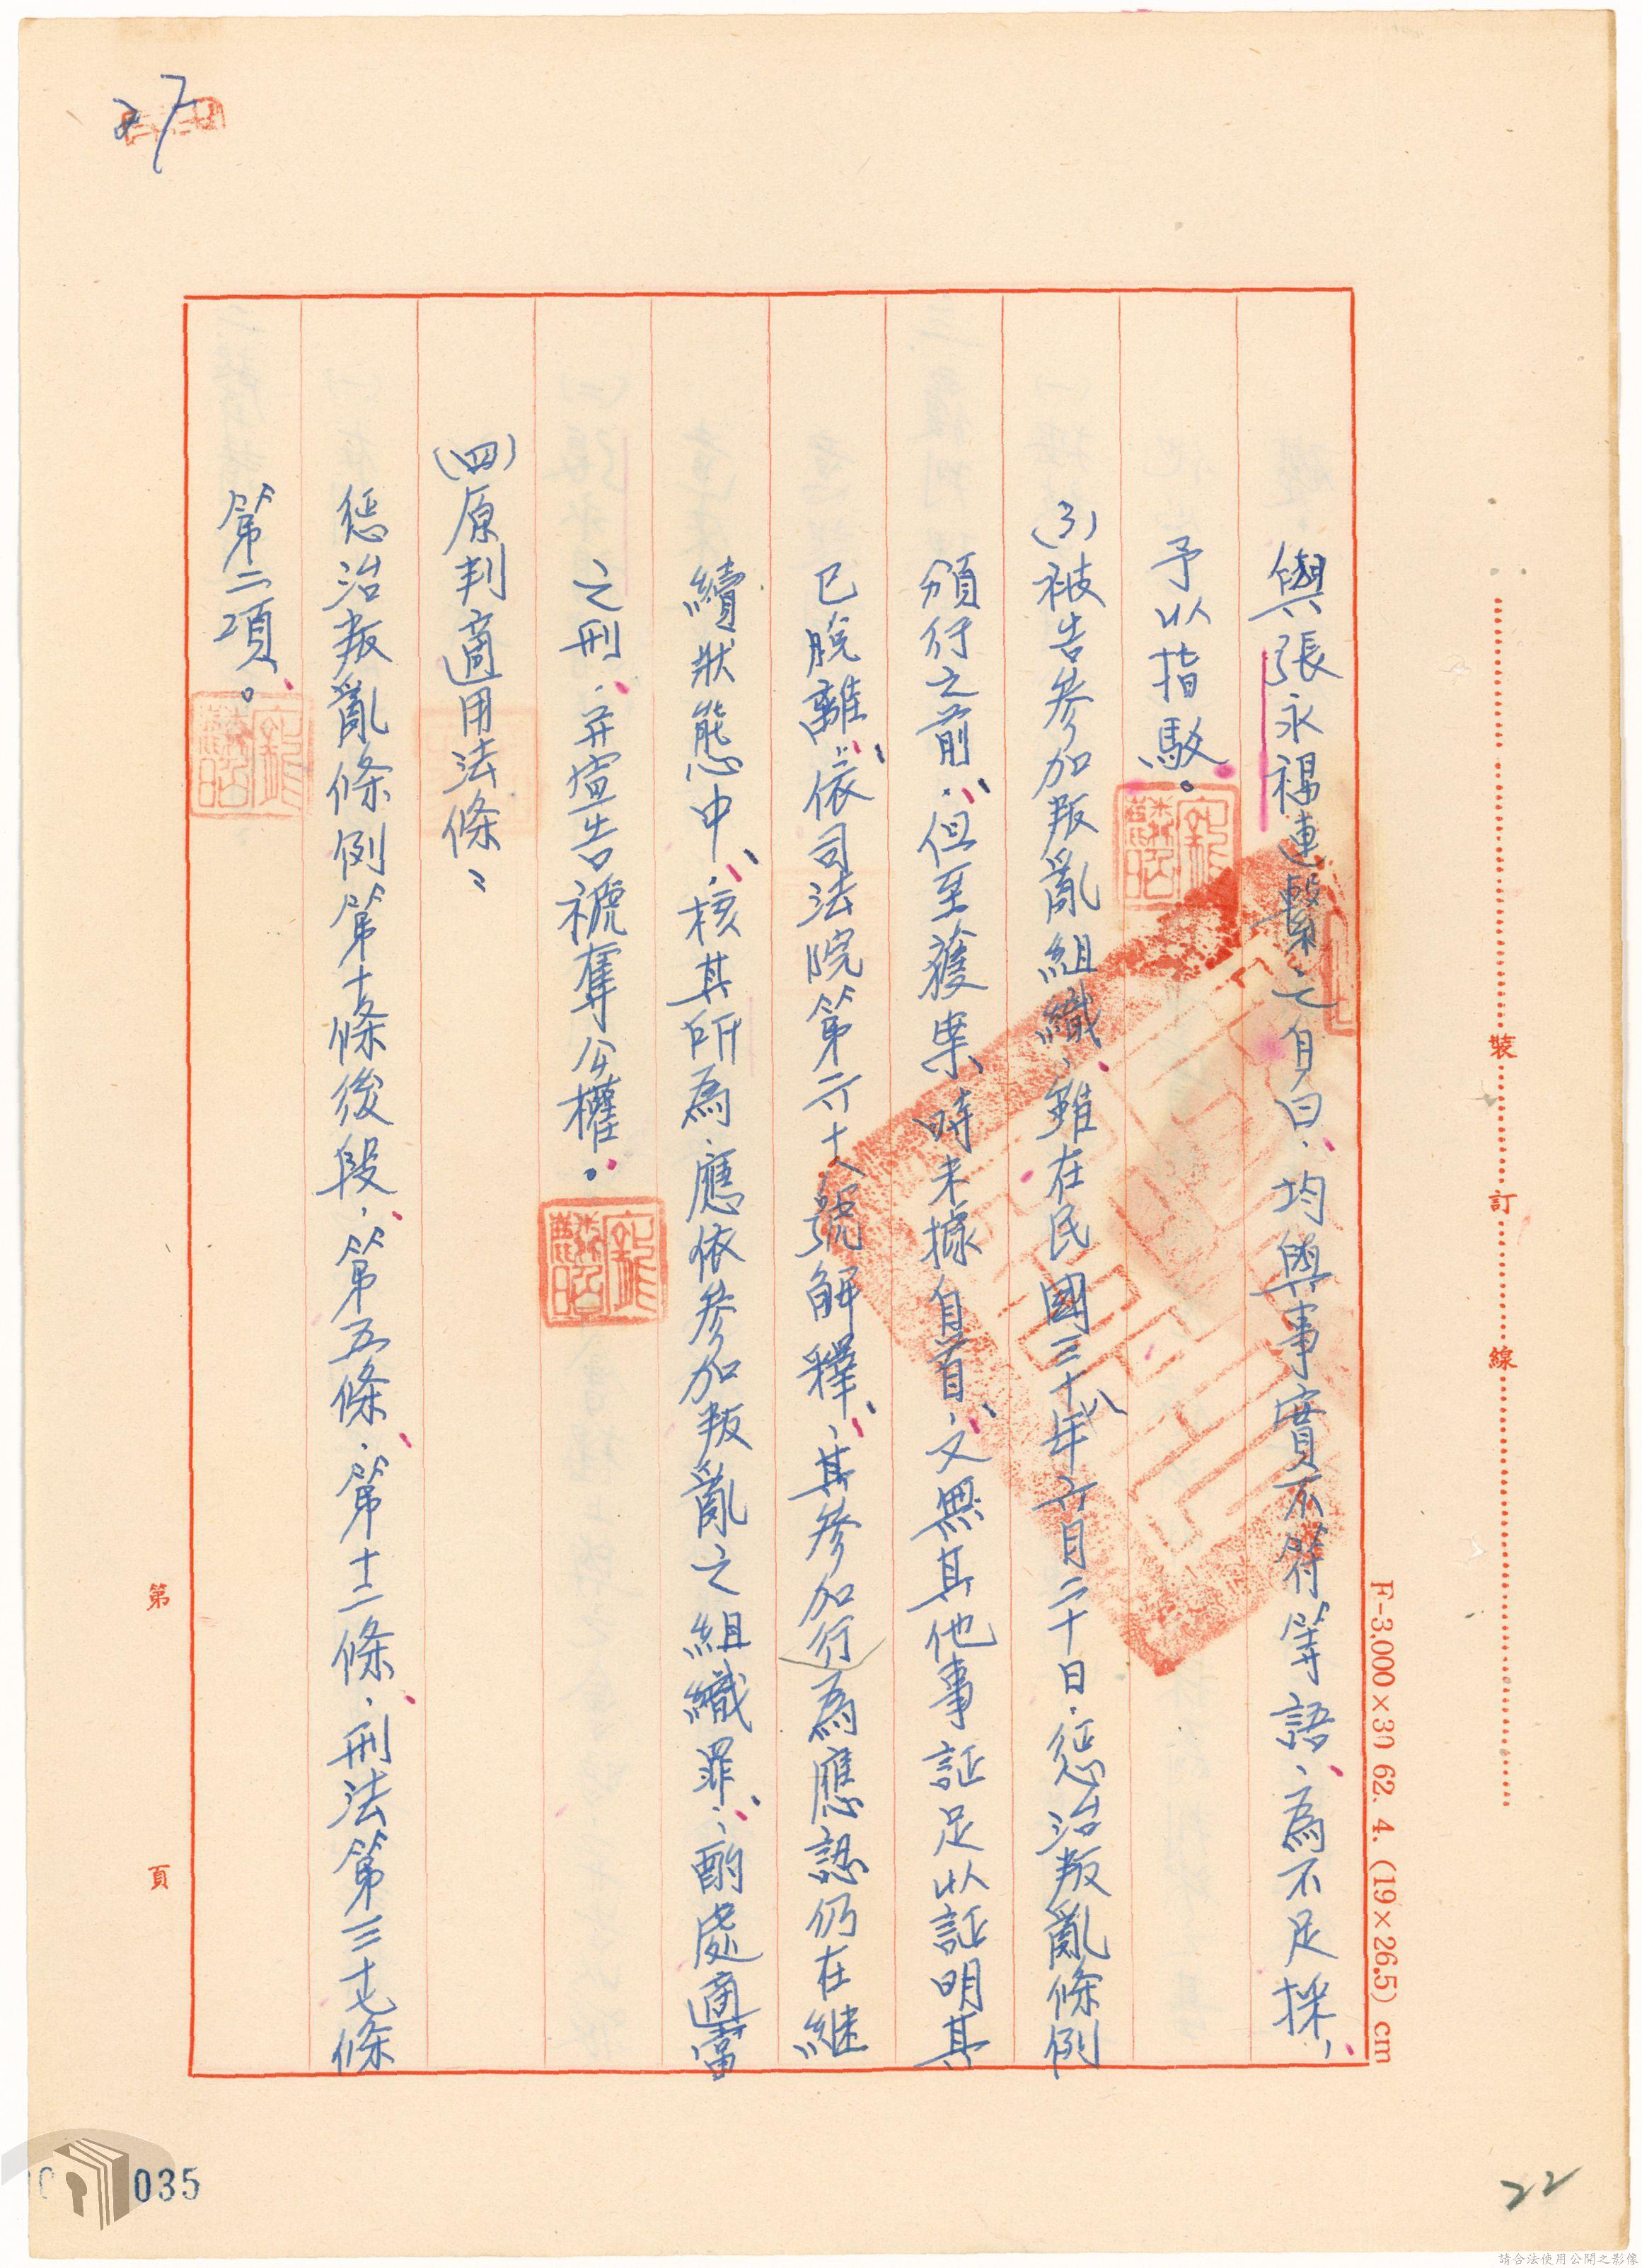 27
與張永福連繫之自白、均與事實不符等語、為不足採、
予以指駁。
(3)被告參加叛亂組織、雖在民國三十八年六月二十日、懲治叛亂條例
頒行之前、但至獲案時未據自首、又無其他事証足以証明其
已脫離、依司法院第六十八號解釋、其參加行為應認仍在繼
續狀態中、核其所為、應依參加叛亂之組織罪、酌處適當
之刑、并宣告褫奪公權。
(四)原判適用法條：
懲治叛亂條例第十條後段、第五條、第十二條、刑法第三十七條
第二項。
裝
訂
線
F-3,000×30 62. 4. (19×26.5) cm
第
頁
035
22
請合法使用公開之影像